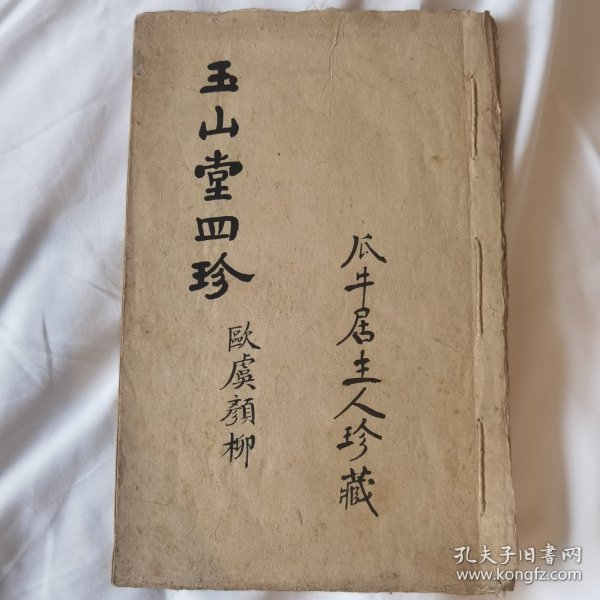 玉山堂四珍
歐虞顏柳
瓜牛居主人珍藏
孔夫子旧書网
www.kongfz.com